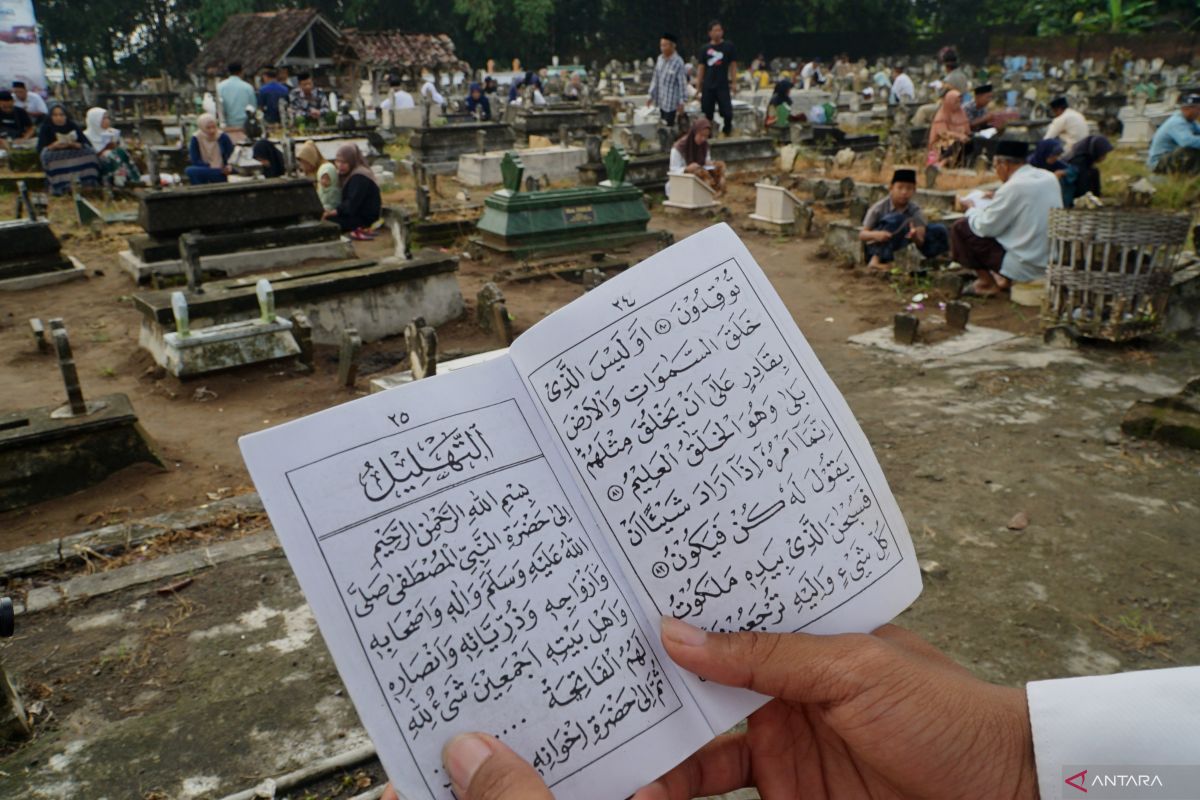 ٢٤
تُوْقِدُوْنَ ۝٨٠ اَوَلَيْسَ الَّذِيْ
خَلَقَ السَّمٰوَاتِ وَالْاَرْضَ
بِقَادِرٍ عَلٰٓى اَنْ يَخْلُقَ مِثْلَهُمْ
بَلٰى وَهُوَ الْخَلّٰقُ الْعَلِيْمُ ۝٨١
اِنَّمَآ اَمْرُهٗ اِذَآ اَرَادَ شَيْـًٔا اَنْ
يَقُوْلَ لَهٗ كُنْ فَيَكُوْنُ ۝٨٢
فَسُبْحٰنَ الَّذِيْ بِيَدِهٖ مَلَكُوْتُ
كُلِّ شَيْءٍ وَاِلَيْهِ تُرْجَعُوْنَ
٢٥
اَلتَّهْلِيْلُ
بِسْمِ اللهِ الرَّحْمٰنِ الرَّحِيْمِ
اِلٰى حَضْرَةِ النَّبِيِّ الْمُصْطَفٰى صَلَّى
اللهُ عَلَيْهِ وَسَلَّمَ وَاٰلِهٖ وَاَصْحَابِهٖ
وَاَزْوَاجِهٖ وَذُرِّيَّاتِهٖ وَاَنْصَارِهٖ
وَاَهْلِ بَيْتِهٖ اَجْمَعِيْنَ شَيْءٌ لِلّٰهِ
لَهُمُ الْفَاتِحَةُ ....
ثُمَّ اِلٰى حَضْرَةِ اِخْوَانِهٖ
ANTARA